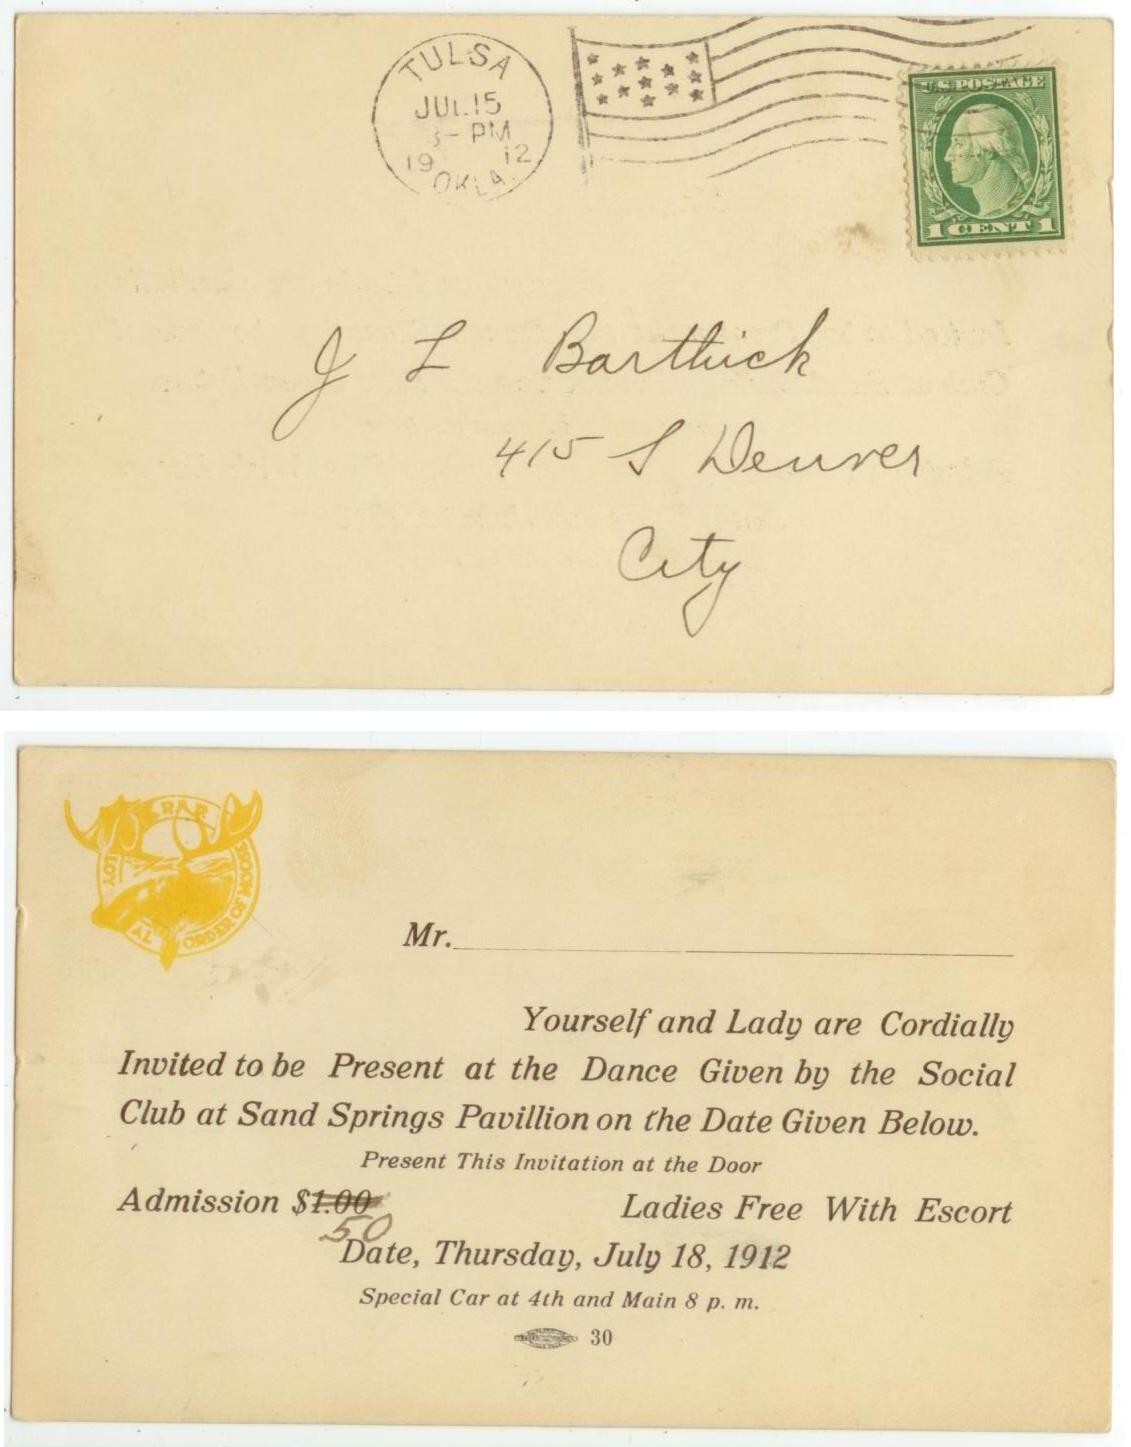 TULSA
JUL 15
- PM
19 12
OKLA.
U.S. POSTAGE
1 CENT 1
J L Barthick
415 S Denver
City
P.A.P.
LOYAL ORDER OF MOOSE
Mr.
Yourself and Lady are Cordially
Invited to be Present at the Dance Given by the Social
Club at Sand Springs Pavillion on the Date Given Below.
Present This Invitation at the Door
Admission $1.00 Ladies Free With Escort
50
Date, Thursday, July 18, 1912
Special Car at 4th and Main 8 p. m.
30